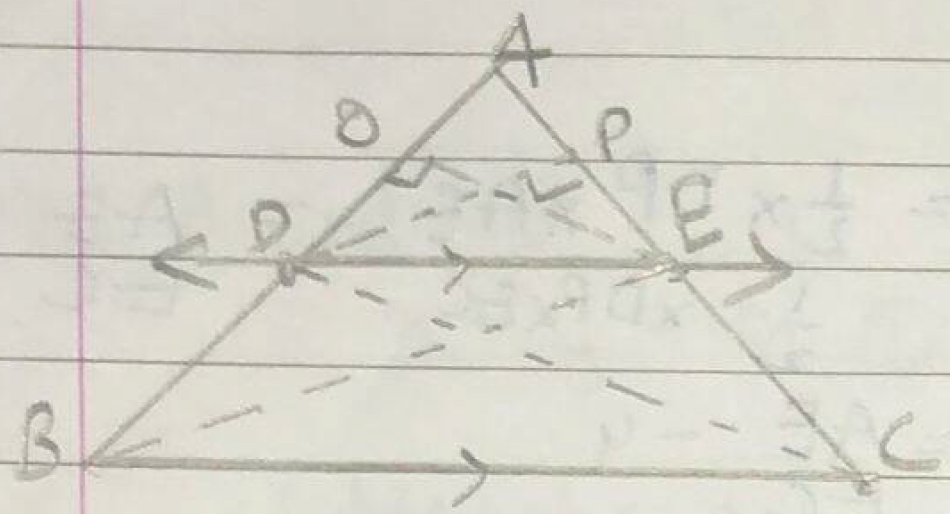 A
O P
D E
B C